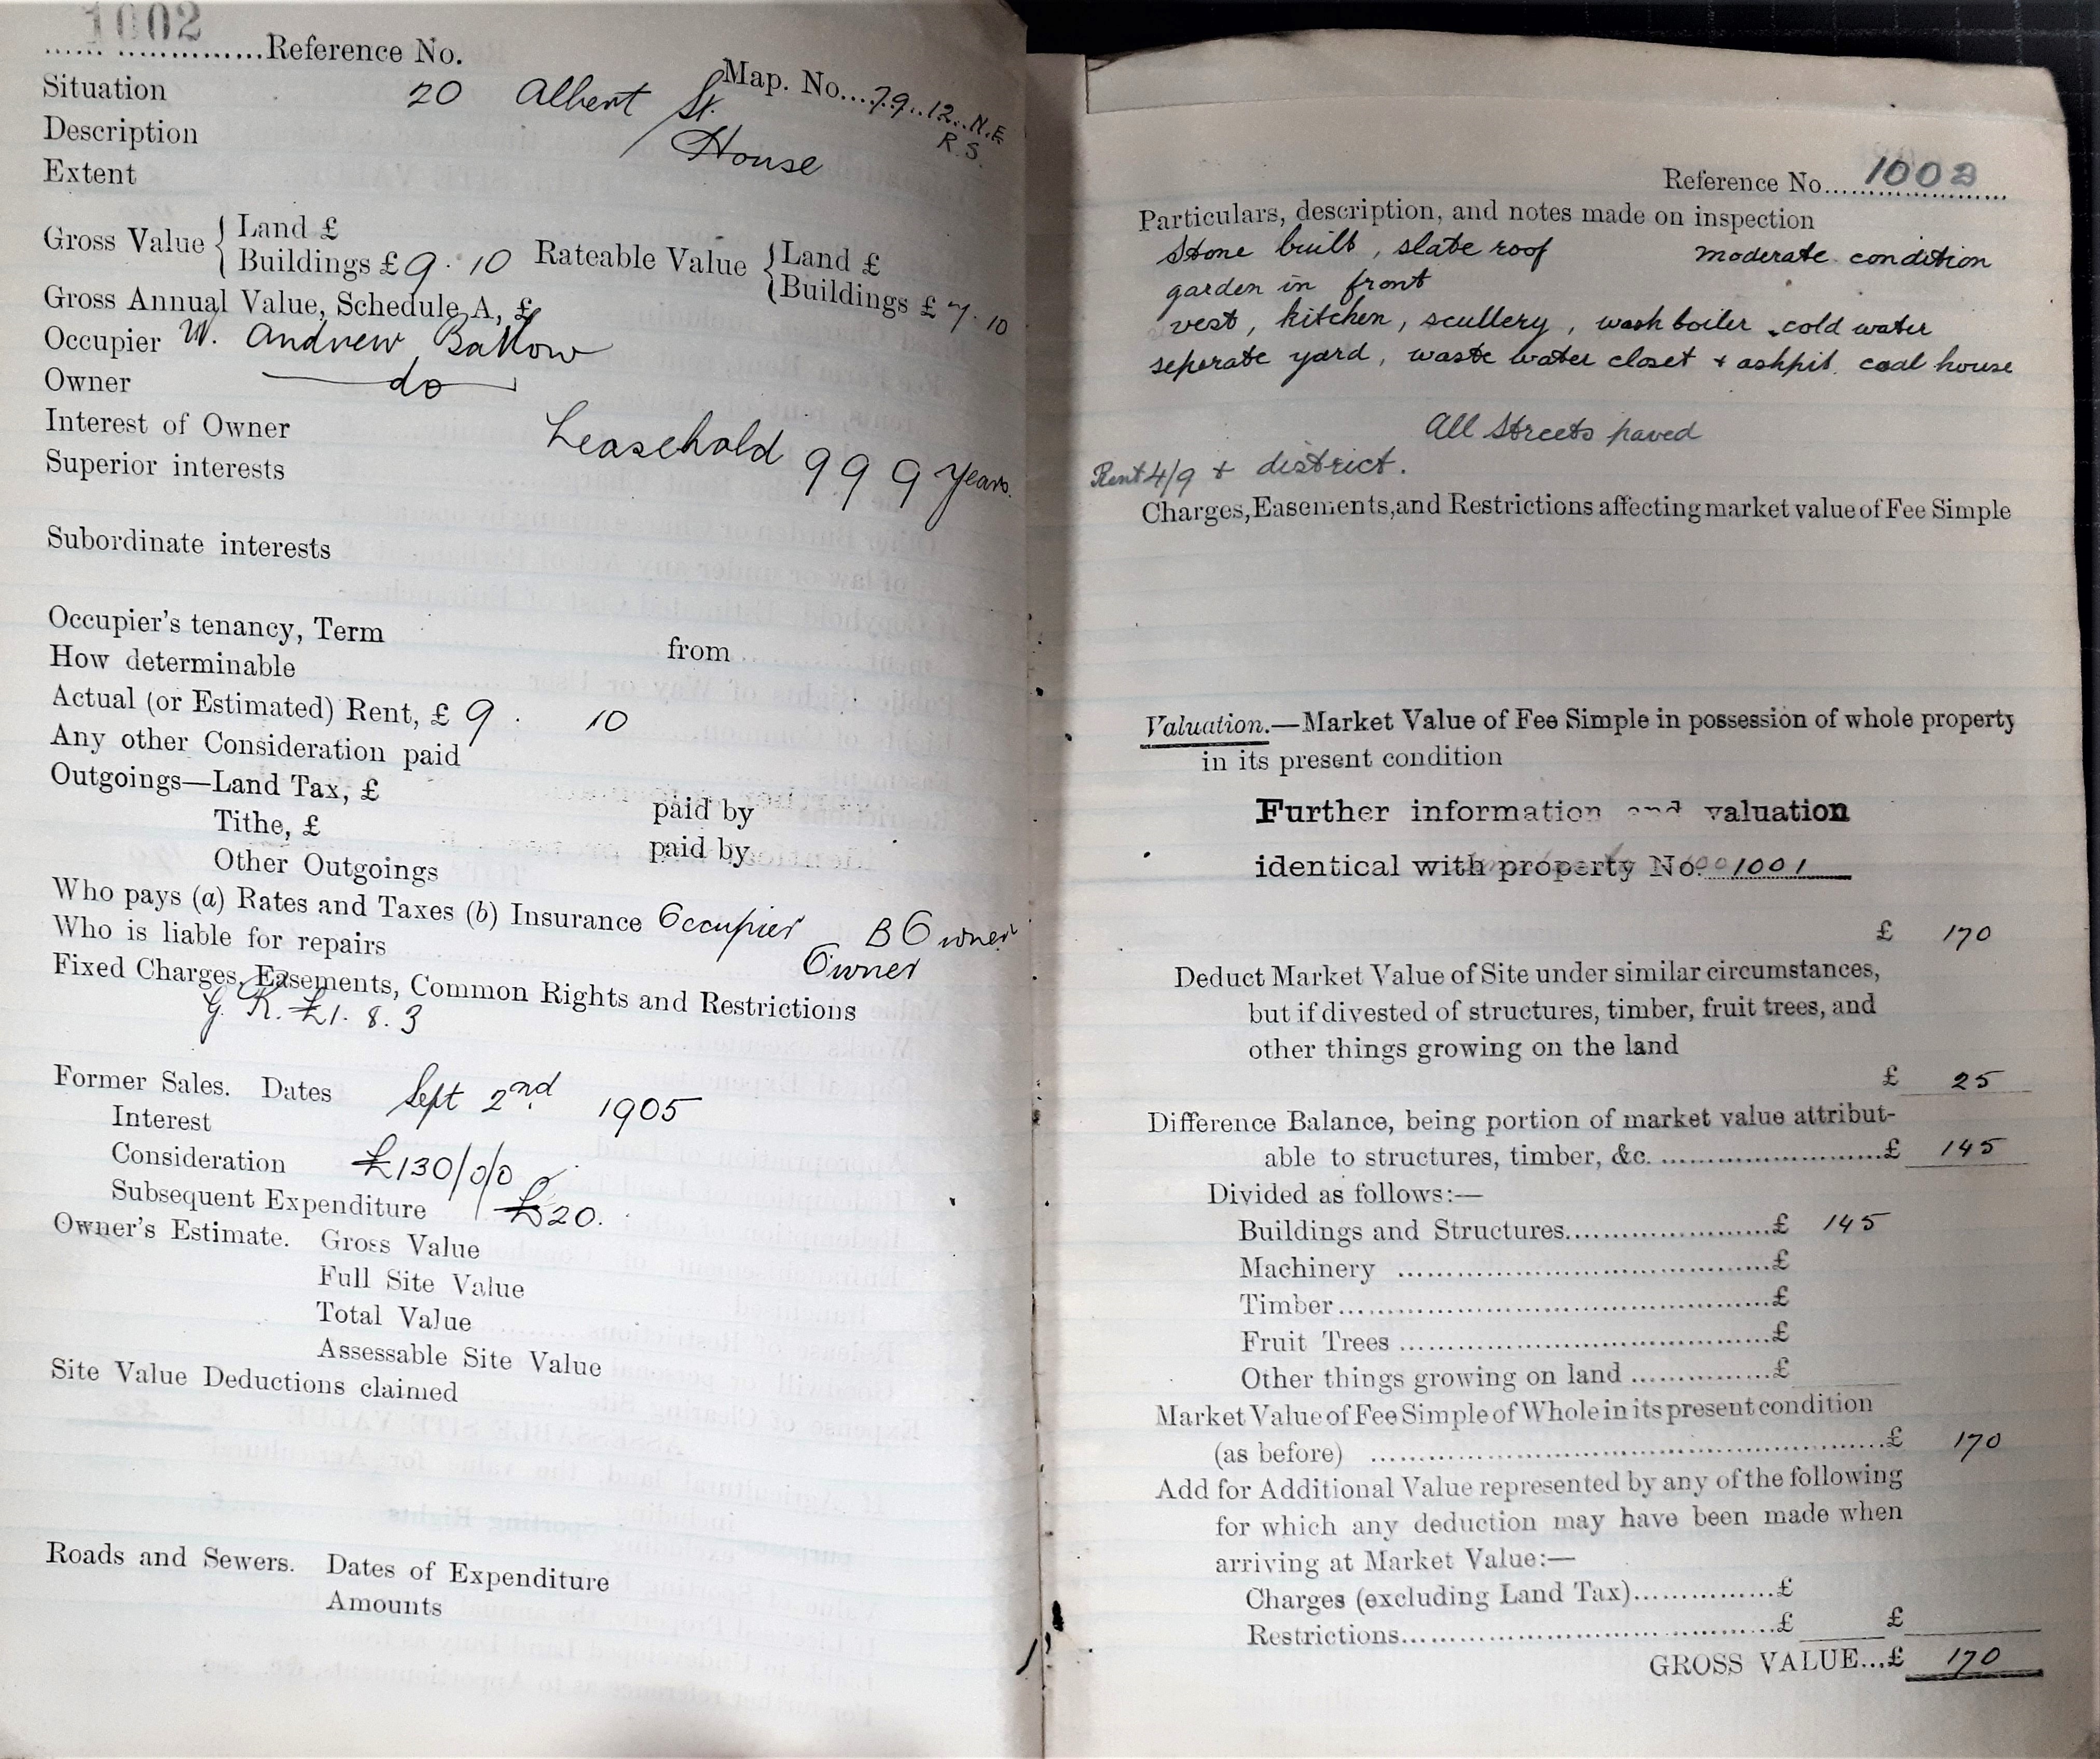 1002
...... ..............Reference No.
Map. No....79..12..N.E
R.S.
Situation 20 Albert St.
Description House
Extent
Gross Value { Land £
Buildings £ 9 . 10 Rateable Value { Land £
Buildings £ 7. 10
Gross Annual Value, Schedule A, £
Occupier W. Andrew
Owner do
Interest of Owner Leasehold 999 Years.
Superior interests
Subordinate interests
Occupier's tenancy, Term from
How determinable
Actual (or Estimated) Rent, £ 9 . 10
Any other Consideration paid
Outgoings—Land Tax, £ paid by
Tithe, £ paid by
Other Outgoings
Who pays (a) Rates and Taxes (b) Insurance Occupier B Owner
Who is liable for repairs Owner
Fixed Charges, Easements, Common Rights and Restrictions
G. R. £1. 8. 3
Former Sales. Dates Sept 2nd 1905
Interest
Consideration £130/0/0
Subsequent Expenditure £20.
Owner's Estimate. Gross Value
Full Site Value
Total Value
Assessable Site Value
Site Value Deductions claimed
Roads and Sewers. Dates of Expenditure
Amounts
Reference No....1002
Particulars, description, and notes made on inspection
Stone built, slate roof moderate condition
garden in front
vest, kitchen, scullery, wash boiler cold water
seperate yard, waste water closet + ashpit. coal house
All Streets paved
Rent 4/9 + district.
Charges, Easements, and Restrictions affecting market value of Fee Simple
Valuation.—Market Value of Fee Simple in possession of whole property
in its present condition
Further information and valuation
identical with property No. 1001
£ 170
Deduct Market Value of Site under similar circumstances,
but if divested of structures, timber, fruit trees, and
other things growing on the land
£ 25
Difference Balance, being portion of market value attribut-
able to structures, timber, &c. ..............................£ 145
Divided as follows:—
Buildings and Structures.......................£ 145
Machinery ..........................................£
Timber................................................£
Fruit Trees ..........................................£
Other things growing on land ................£
Market Value of Fee Simple of Whole in its present condition
(as before) ..........................................................£ 170
Add for Additional Value represented by any of the following
for which any deduction may have been made when
arriving at Market Value:—
Charges (excluding Land Tax)................£
Restrictions..........................................£ £
GROSS VALUE...£ 170